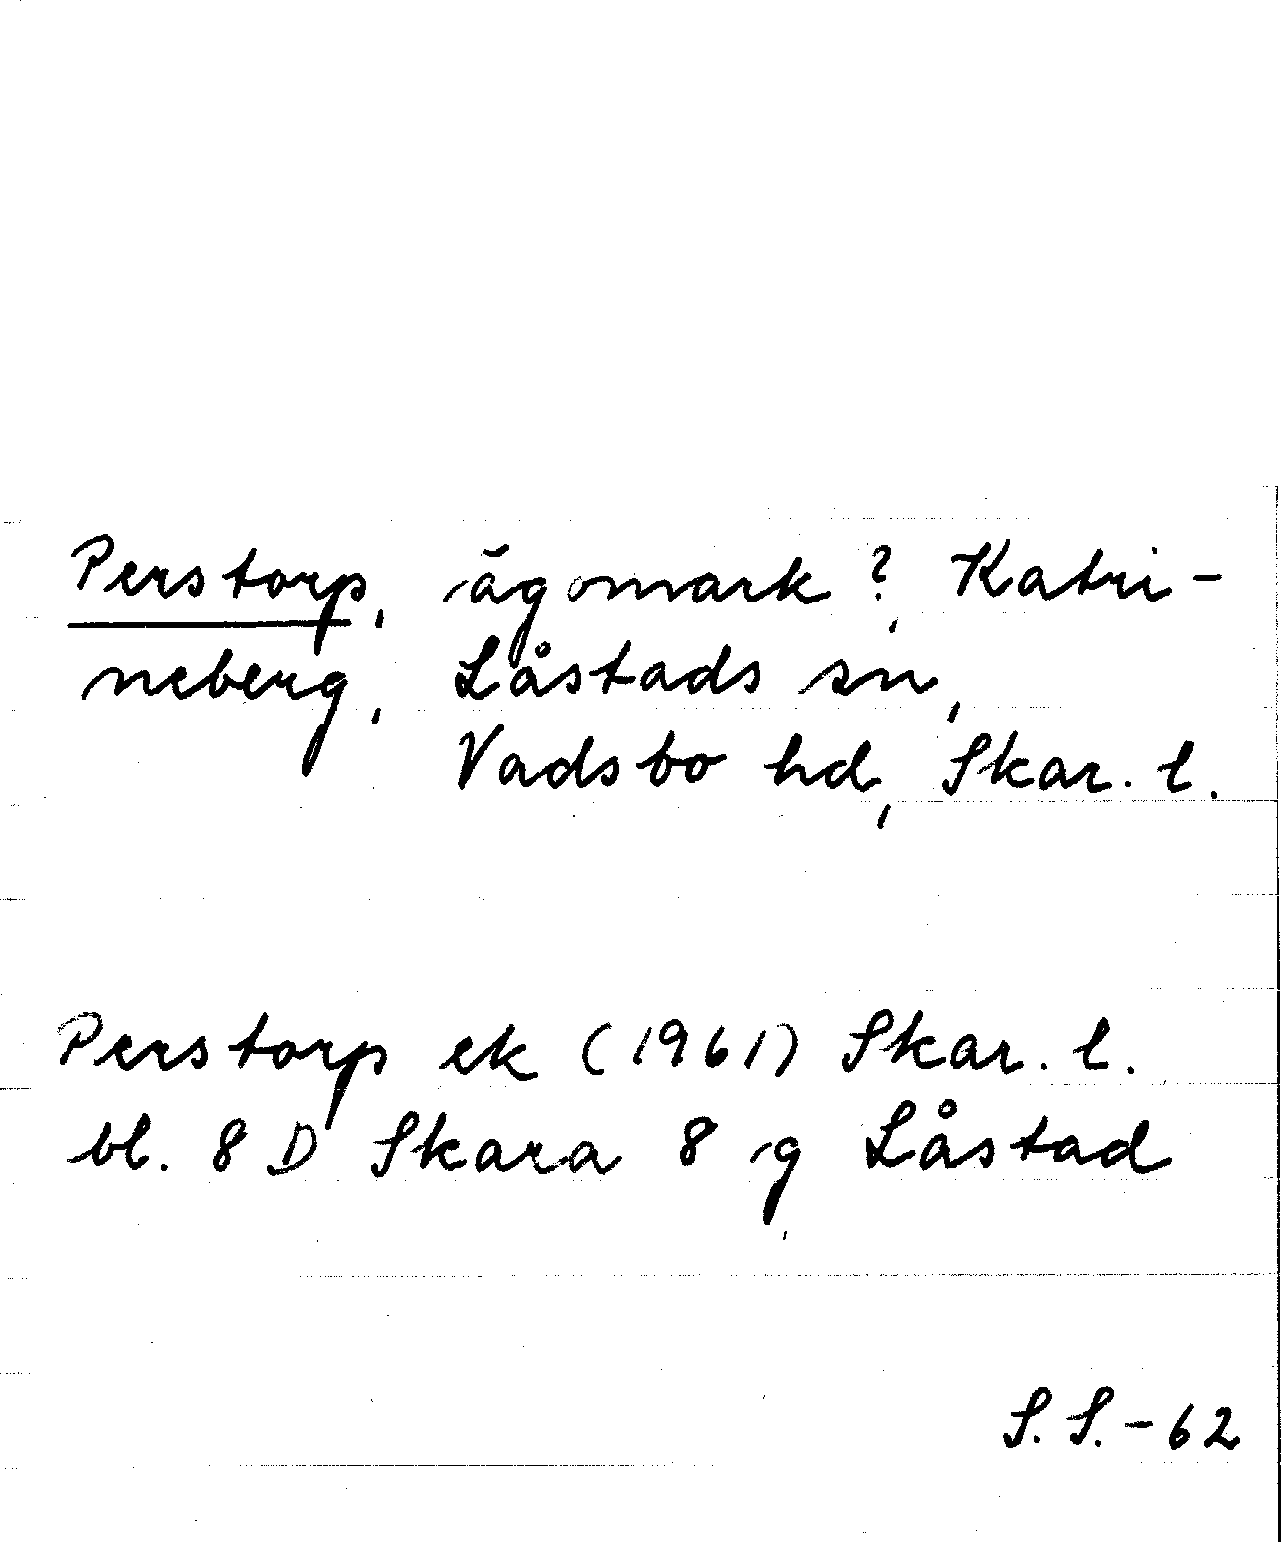 Perstorp, ägomark?, Katri-
neberg, Låstads sn,
Vadsbo hd, Skar. l.
Perstorp ek (1961) Skar. l.
bl. 8 D Skara 8 g Låstad
S.S.-62